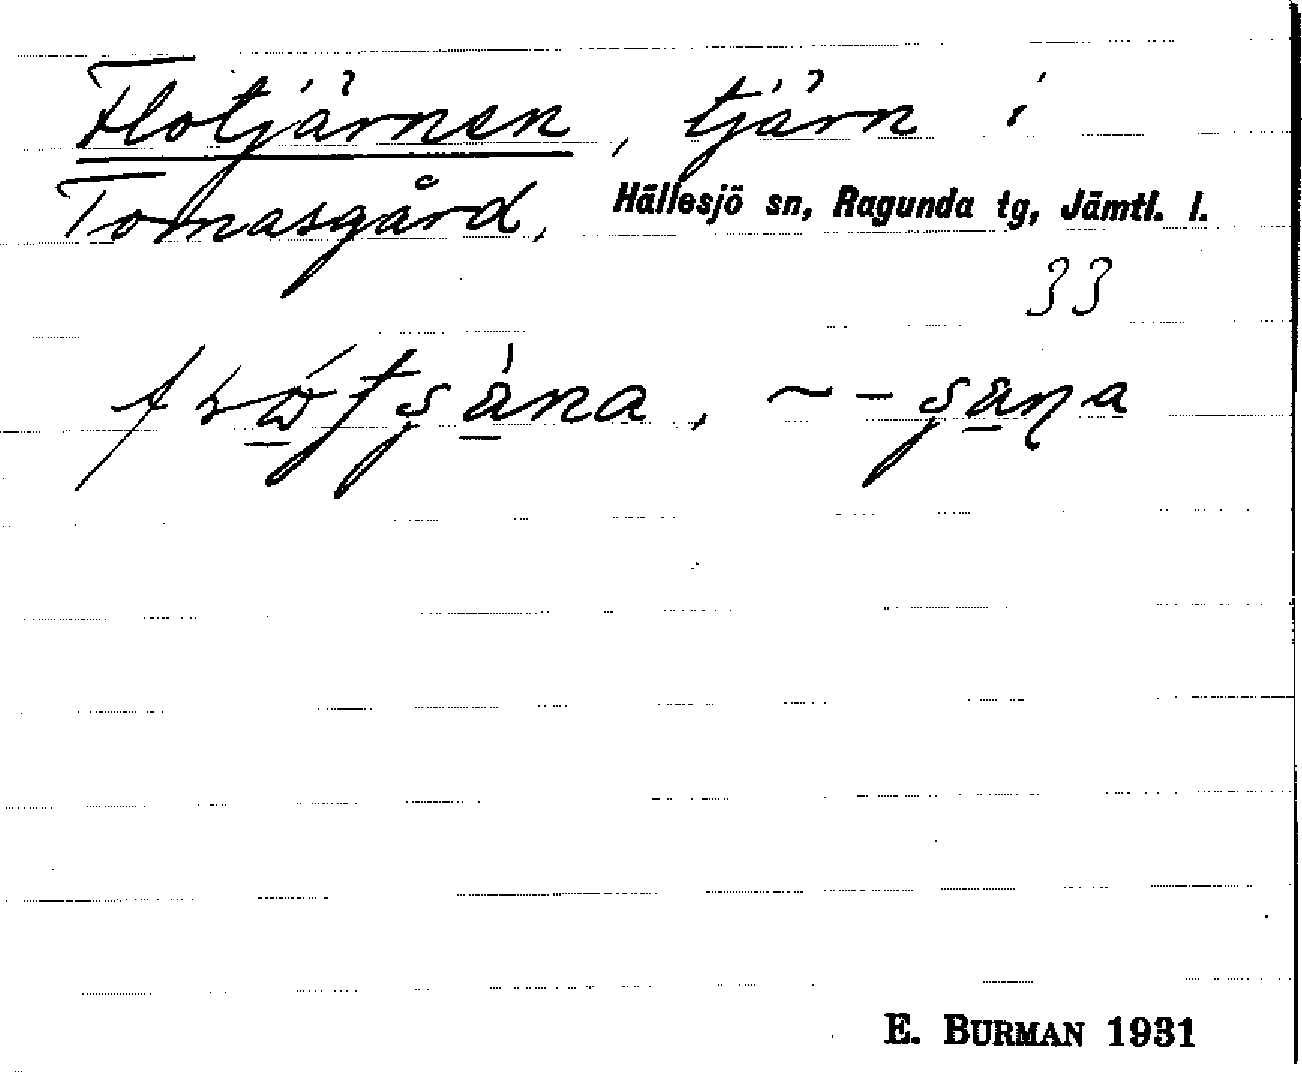 Flotjärnen, tjärn i
Tomasgård, Hällesjö sn, Ragunda tg, Jämtl. l.
33
E. BURMAN 1931